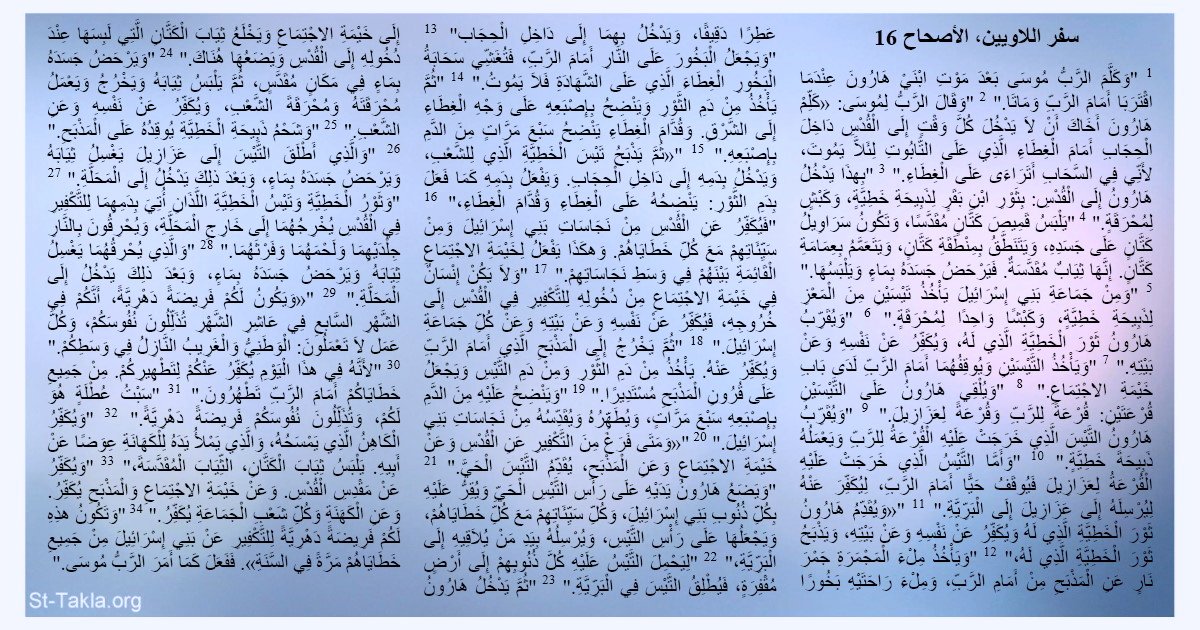 سفر اللاويين، الأصحاح 16
1 "وَكَلَّمَ الرَّبُّ مُوسَى بَعْدَ مَوْتِ ابْنَيْ هَارُونَ عِنْدَمَا
اقْتَرَبَا أَمَامَ الرَّبِّ وَمَاتَا." 2 "وَقَالَ الرَّبُّ لِمُوسَى: «كَلِّمْ
هَارُونَ أَخَاكَ أَنْ لاَ يَدْخُلَ كُلَّ وَقْتٍ إِلَى الْقُدْسِ دَاخِلَ
الْحِجَابِ أَمَامَ الْغِطَاءِ الَّذِي عَلَى التَّابُوتِ لِئَلاَّ يَمُوتَ،
لأَنِّي فِي السَّحَابِ أَتَرَاءَى عَلَى الْغِطَاءِ." 3 "بِهذَا يَدْخُلُ
هَارُونُ إِلَى الْقُدْسِ: بِثَوْرِ ابْنِ بَقَرٍ لِذَبِيحَةِ خَطِيَّةٍ، وَكَبْشٍ
لِمُحْرَقَةٍ." 4 "يَلْبَسُ قَمِيصَ كَتَّانٍ مُقَدَّسًا، وَتَكُونُ سَرَاوِيلُ
كَتَّانٍ عَلَى جَسَدِهِ، وَيَتَنَطَّقُ بِمِنْطَقَةِ كَتَّانٍ، وَيَتَعَمَّمُ بِعِمَامَةِ
كَتَّانٍ. إِنَّهَا ثِيَابٌ مُقَدَّسَةٌ. فَيَرْحَضُ جَسَدَهُ بِمَاءٍ وَيَلْبَسُهَا."
5 "وَمِنْ جَمَاعَةِ بَنِي إِسْرَائِيلَ يَأْخُذُ تَيْسَيْنِ مِنَ الْمَعْزِ
لِذَبِيحَةِ خَطِيَّةٍ، وَكَبْشًا وَاحِدًا لِمُحْرَقَةٍ." 6 "وَيُقَرِّبُ
هَارُونُ ثَوْرَ الْخَطِيَّةِ الَّذِي لَهُ، وَيُكَفِّرُ عَنْ نَفْسِهِ وَعَنْ
بَيْتِهِ." 7 "وَيَأْخُذُ التَّيْسَيْنِ وَيُوقِفُهُمَا أَمَامَ الرَّبِّ لَدَى بَابِ
خَيْمَةِ الاجْتِمَاعِ." 8 "وَيُلْقِي هَارُونُ عَلَى التَّيْسَيْنِ
قُرْعَتَيْنِ: قُرْعَةً لِلرَّبِّ وَقُرْعَةً لِعَزَازِيلَ." 9 "وَيُقَرِّبُ
هَارُونُ التَّيْسَ الَّذِي خَرَجَتْ عَلَيْهِ الْقُرْعَةُ لِلرَّبِّ وَيَعْمَلُهُ
ذَبِيحَةَ خَطِيَّةٍ." 10 "وَأَمَّا التَّيْسُ الَّذِي خَرَجَتْ عَلَيْهِ
الْقُرْعَةُ لِعَزَازِيلَ فَيُوقَفُ حَيًّا أَمَامَ الرَّبِّ، لِيُكَفِّرَ عَنْهُ
لِيُرْسِلَهُ إِلَى عَزَازِيلَ إِلَى الْبَرِّيَّةِ." 11 "«وَيُقَدِّمُ هَارُونُ
ثَوْرَ الْخَطِيَّةِ الَّذِي لَهُ وَيُكَفِّرُ عَنْ نَفْسِهِ وَعَنْ بَيْتِهِ، وَيَذْبَحُ
ثَوْرَ الْخَطِيَّةِ الَّذِي لَهُ،" 12 "وَيَأْخُذُ مِلْءَ الْمَجْمَرَةِ جَمْرَ
نَارٍ عَنِ الْمَذْبَحِ مِنْ أَمَامِ الرَّبِّ، وَمِلْءَ رَاحَتَيْهِ بَخُورًا
عَطِرًا دَقِيقًا، وَيَدْخُلُ بِهِمَا إِلَى دَاخِلِ الْحِجَابِ" 13
"وَيَجْعَلُ الْبَخُورَ عَلَى النَّارِ أَمَامَ الرَّبِّ، فَتُغَشِّي سَحَابَةُ
الْبَخُورِ الْغِطَاءَ الَّذِي عَلَى الشَّهَادَةِ فَلاَ يَمُوتُ." 14 "ثُمَّ
يَأْخُذُ مِنْ دَمِ الثَّوْرِ وَيَنْضِحُ بِإِصْبَعِهِ عَلَى وَجْهِ الْغِطَاءِ
إِلَى الشَّرْقِ. وَقُدَّامَ الْغِطَاءِ يَنْضِحُ سَبْعَ مَرَّاتٍ مِنَ الدَّمِ
بِإِصْبَعِهِ." 15 "«ثُمَّ يَذْبَحُ تَيْسَ الْخَطِيَّةِ الَّذِي لِلشَّعْبِ،
وَيَدْخُلُ بِدَمِهِ إِلَى دَاخِلِ الْحِجَابِ. وَيَفْعَلُ بِدَمِهِ كَمَا فَعَلَ
بِدَمِ الثَّوْرِ: يَنْضِحُهُ عَلَى الْغِطَاءِ وَقُدَّامَ الْغِطَاءِ،" 16
"فَيُكَفِّرُ عَنِ الْقُدْسِ مِنْ نَجَاسَاتِ بَنِي إِسْرَائِيلَ وَمِنْ
سَيِّئَاتِهِمْ مَعَ كُلِّ خَطَايَاهُمْ. وَهكَذَا يَفْعَلُ لِخَيْمَةِ الاجْتِمَاعِ
الْقَائِمَةِ بَيْنَهُمْ فِي وَسَطِ نَجَاسَاتِهِمْ." 17 "وَلاَ يَكُنْ إِنْسَانٌ
فِي خَيْمَةِ الاجْتِمَاعِ مِنْ دُخُولِهِ لِلتَّكْفِيرِ فِي الْقُدْسِ إِلَى
خُرُوجِهِ، فَيُكَفِّرُ عَنْ نَفْسِهِ وَعَنْ بَيْتِهِ وَعَنْ كُلِّ جَمَاعَةِ
إِسْرَائِيلَ." 18 "ثُمَّ يَخْرُجُ إِلَى الْمَذْبَحِ الَّذِي أَمَامَ الرَّبِّ
وَيُكَفِّرُ عَنْهُ. يَأْخُذُ مِنْ دَمِ الثَّوْرِ وَمِنْ دَمِ التَّيْسِ وَيَجْعَلُ
عَلَى قُرُونِ الْمَذْبَحِ مُسْتَدِيرًا." 19 "وَيَنْضِحُ عَلَيْهِ مِنَ الدَّمِ
بِإِصْبَعِهِ سَبْعَ مَرَّاتٍ، وَيُطَهِّرُهُ وَيُقَدِّسُهُ مِنْ نَجَاسَاتِ بَنِي
إِسْرَائِيلَ." 20 "«وَمَتَى فَرَغَ مِنَ التَّكْفِيرِ عَنِ الْقُدْسِ وَعَنْ
خَيْمَةِ الاجْتِمَاعِ وَعَنِ الْمَذْبَحِ، يُقَدِّمُ التَّيْسَ الْحَيَّ." 21
"وَيَضَعُ هَارُونُ يَدَيْهِ عَلَى رَأْسِ التَّيْسِ الْحَيِّ وَيُقِرُّ عَلَيْهِ
بِكُلِّ ذُنُوبِ بَنِي إِسْرَائِيلَ، وَكُلِّ سَيِّئَاتِهِمْ مَعَ كُلِّ خَطَايَاهُمْ،
وَيَجْعَلُهَا عَلَى رَأْسِ التَّيْسِ، وَيُرْسِلُهُ بِيَدِ مَنْ يُلاَقِيهِ إِلَى
الْبَرِّيَّةِ،" 22 "لِيَحْمِلَ التَّيْسُ عَلَيْهِ كُلَّ ذُنُوبِهِمْ إِلَى أَرْضٍ
مُقْفِرَةٍ، فَيُطْلِقُ التَّيْسَ فِي الْبَرِّيَّةِ." 23 "ثُمَّ يَدْخُلُ هَارُونُ
إِلَى خَيْمَةِ الاجْتِمَاعِ وَيَخْلَعُ ثِيَابَ الْكَتَّانِ الَّتِي لَبِسَهَا عِنْدَ
دُخُولِهِ إِلَى الْقُدْسِ وَيَضَعُهَا هُنَاكَ." 24 "وَيَرْحَضُ جَسَدَهُ
بِمَاءٍ فِي مَكَانٍ مُقَدَّسٍ، ثُمَّ يَلْبَسُ ثِيَابَهُ وَيَخْرُجُ وَيَعْمَلُ
مُحْرَقَتَهُ وَمُحْرَقَةَ الشَّعْبِ، وَيُكَفِّرُ عَنْ نَفْسِهِ وَعَنِ
الشَّعْبِ." 25 "وَشَحْمُ ذَبِيحَةِ الْخَطِيَّةِ يُوقِدُهُ عَلَى الْمَذْبَحِ."
26 "وَالَّذِي أَطْلَقَ التَّيْسَ إِلَى عَزَازِيلَ يَغْسِلُ ثِيَابَهُ
وَيَرْحَضُ جَسَدَهُ بِمَاءٍ، وَبَعْدَ ذلِكَ يَدْخُلُ إِلَى الْمَحَلَّةِ." 27
"وَثَوْرُ الْخَطِيَّةِ وَتَيْسُ الْخَطِيَّةِ اللَّذَانِ أُتِيَ بِدَمِهِمَا لِلتَّكْفِيرِ
فِي الْقُدْسِ يُخْرِجُهُمَا إِلَى خَارِجِ الْمَحَلَّةِ، وَيُحْرِقُونَ بِالنَّارِ
جِلْدَيْهِمَا وَلَحْمَهُمَا وَفَرْثَهُمَا." 28 "وَالَّذِي يُحْرِقُهُمَا يَغْسِلُ
ثِيَابَهُ وَيَرْحَضُ جَسَدَهُ بِمَاءٍ، وَبَعْدَ ذلِكَ يَدْخُلُ إِلَى
الْمَحَلَّةِ." 29 "«وَيَكُونُ لَكُمْ فَرِيضَةً دَهْرِيَّةً، أَنَّكُمْ فِي
الشَّهْرِ السَّابعِ فِي عَاشِرِ الشَّهْرِ تُذَلِّلُونَ نُفُوسَكُمْ، وَكُلَّ
عَمَل لاَ تَعْمَلُونَ: الْوَطَنِيُّ وَالْغَرِيبُ النَّازِلُ فِي وَسَطِكُمْ."
30 "لأَنَّهُ فِي هذَا الْيَوْمِ يُكَفِّرُ عَنْكُمْ لِتَطْهِيرِكُمْ. مِنْ جَمِيعِ
خَطَايَاكُمْ أَمَامَ الرَّبِّ تَطْهُرُونَ." 31 "سَبْتُ عُطْلَةٍ هُوَ
لَكُمْ، وَتُذَلِّلُونَ نُفُوسَكُمْ فَرِيضَةً دَهْرِيَّةً." 32 "وَيُكَفِّرُ
الْكَاهِنُ الَّذِي يَمْسَحُهُ، وَالَّذِي يَمْلأُ يَدَهُ لِلْكَهَانَةِ عِوَضًا عَنْ
أَبِيهِ. يَلْبَسُ ثِيَابَ الْكَتَّانِ، الثِّيَابَ الْمُقَدَّسَةَ،" 33 "وَيُكَفِّرُ
عَنْ مَقْدِسِ الْقُدْسِ. وَعَنْ خَيْمَةِ الاجْتِمَاعِ وَالْمَذْبَحِ يُكَفِّرُ.
وَعَنِ الْكَهَنَةِ وَكُلِّ شَعْبِ الْجَمَاعَةِ يُكَفِّرُ." 34 "وَتَكُونُ هذِهِ
لَكُمْ فَرِيضَةً دَهْرِيَّةً لِلتَّكْفِيرِ عَنْ بَنِي إِسْرَائِيلَ مِنْ جَمِيعِ
خَطَايَاهُمْ مَرَّةً فِي السَّنَةِ». فَفَعَلَ كَمَا أَمَرَ الرَّبُّ مُوسَى."
St-Takla.org